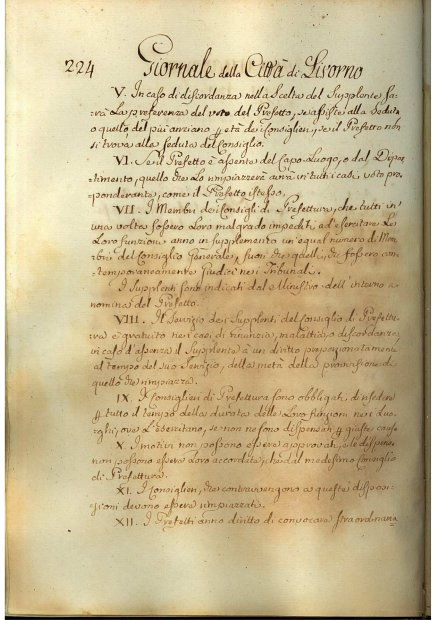 224 Giornale della Città di Livorno
V. In caso di discordanza nella Scelta del Supplente fa-
rà La preferenza del voto del Prefetto, se assiste alla Seduta
o quello del più anziano p età de i Consiglieri, se il Prefetto non
si trova alla Seduta del Consiglio.
VI. Se il Prefetto è assente dal Capo-Luogo, o dal Dipar-
timento, quello che Lo rimpiazzerà avrà in tutti i casi, voto pre-
ponderante, come il Prefetto istesso.
VII. I Membri dei Consigli di Prefettura, che tutti in
una volta fossero Loro malgrado impediti, ad esercitare Le
Loro funzioni anno in Supplemento un'egual numero di Mem-
bri del Consiglio Generale, fuori di quelli, che fossero con-
temporaneamente Giudici nei Tribunali.
I Supplenti sono indicati dal Ministro dell'interno a
nomina del Prefetto.
VIII. Il Servizio dei Supplenti del Consiglio di Prefettu-
ra è gratuito nei casi di rinunzia, malattia, o discordanza,
in caso d'assenza il Supplente à un diritto proporzionatamente
al tempo del suo Servizio, della metà della provvisione di
quello che rimpiazza.
IX. I Consiglieri di Prefettura sono obbligati, di risedere
p tutto il tempo della durata delle Loro funzioni nei Luo-
ghi, ove L'esercitano, se non ne sono dispensati p giuste cause
X. I motivi non possono essere approvati, e le dispense
non possono essere Loro accordate, che dal medesimo Consiglio
di Prefettura.
XI. I Consiglieri, che contravvengono a queste disposi-
zioni devono essere rimpiazzati.
XII. I Prefetti anno diritto di convocare straordinaria